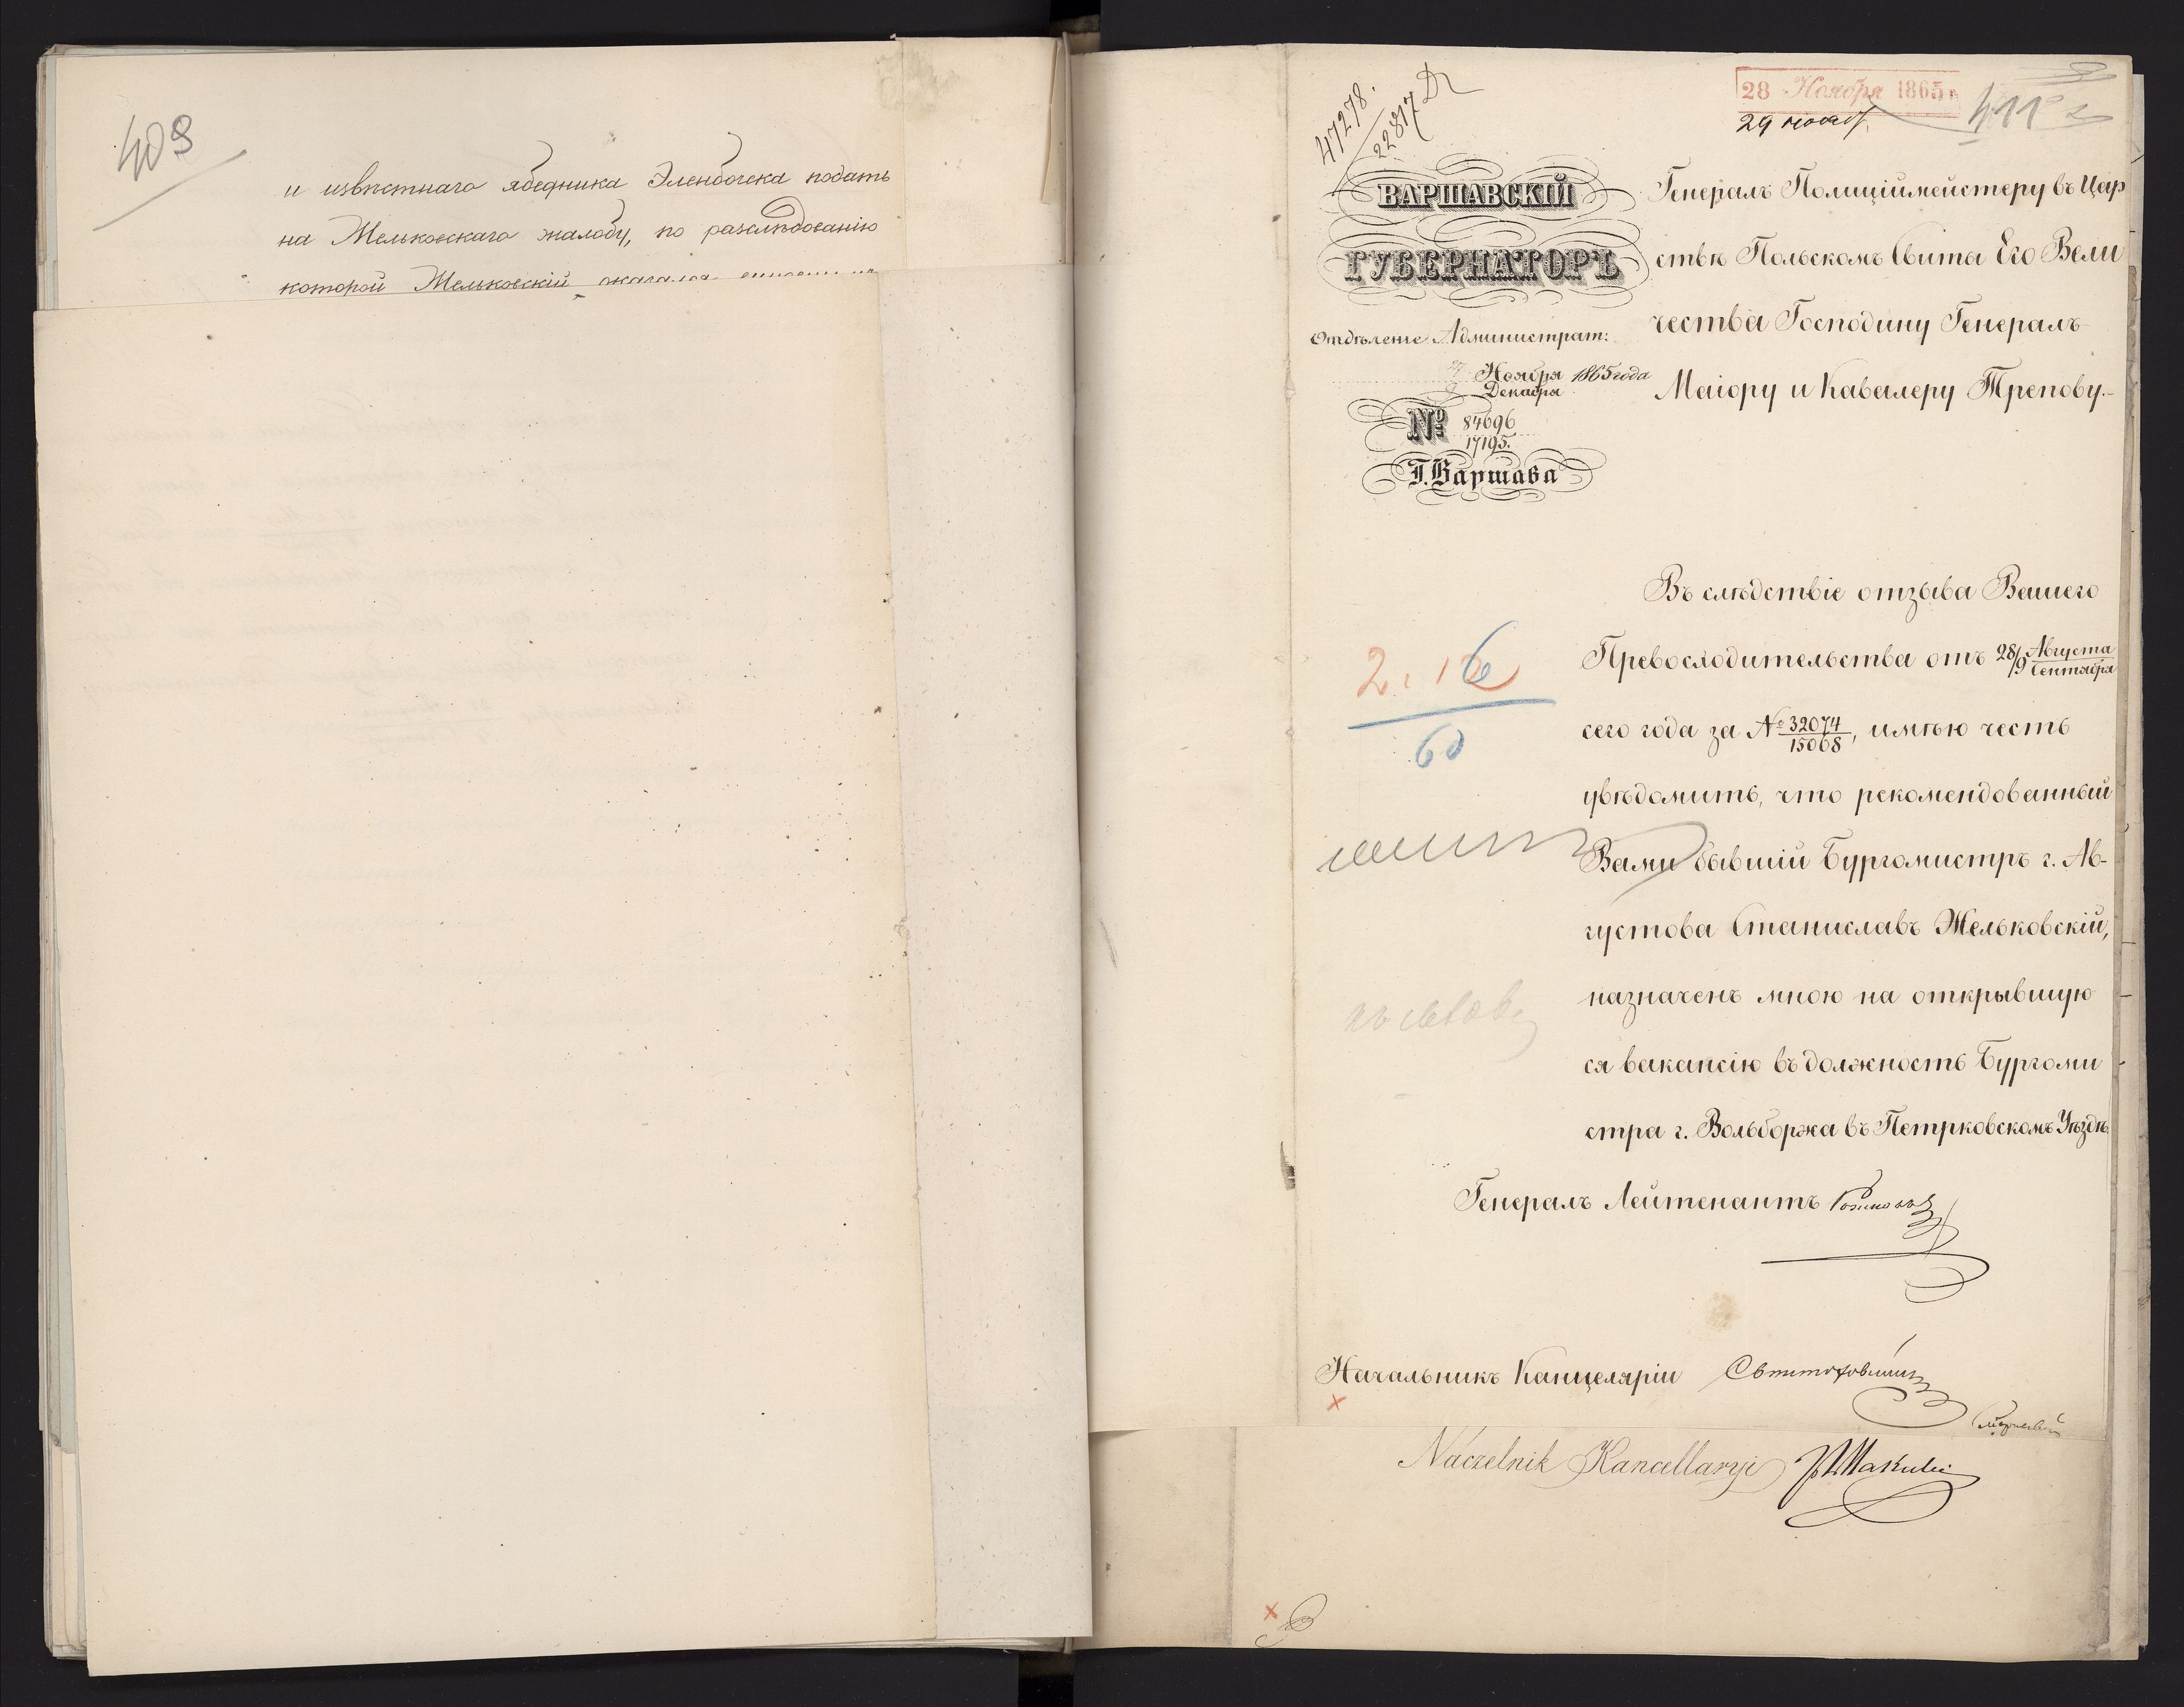 409
и известнаго ябедника Элендочека подать
на Мельковскаго жалобу, по разслѣдованію
которой Мельковскій оказался
47278.
22817
28 Ноября 1865 г.
29 нояб.
411
ВАРШАВСКІЙ
ГУБЕРНАТОРЪ
Отдѣленіе Администрат:
Ноября 1865 года
Декабря
№ 84696
17195.
Г. Варшава
Генералъ Полиціймейстеру въ Цар
ствѣ Польскомъ Свиты Его Вели
чества Господину Генералъ
Маіору и Кавалеру Трепову.-
Въ слѣдствіе отзыва Вашего
Превосходительства отъ 28/9 Августа/Сентября
сего года за № 32074/15068, имѣю честь
увѣдомить, что рекомендованный
Вами бывшій Бургомистръ г. Ав-
густова Станиславъ Мельковскій,
назначенъ мною на открывшую
ся вакансію въ должность Бургоми
стра г. Вольборжа въ Петрковскомъ Уѣздѣ.
60
Генералъ Лейтенантъ
Начальникъ Канцеляріи
Naczelnik Kancellaryi